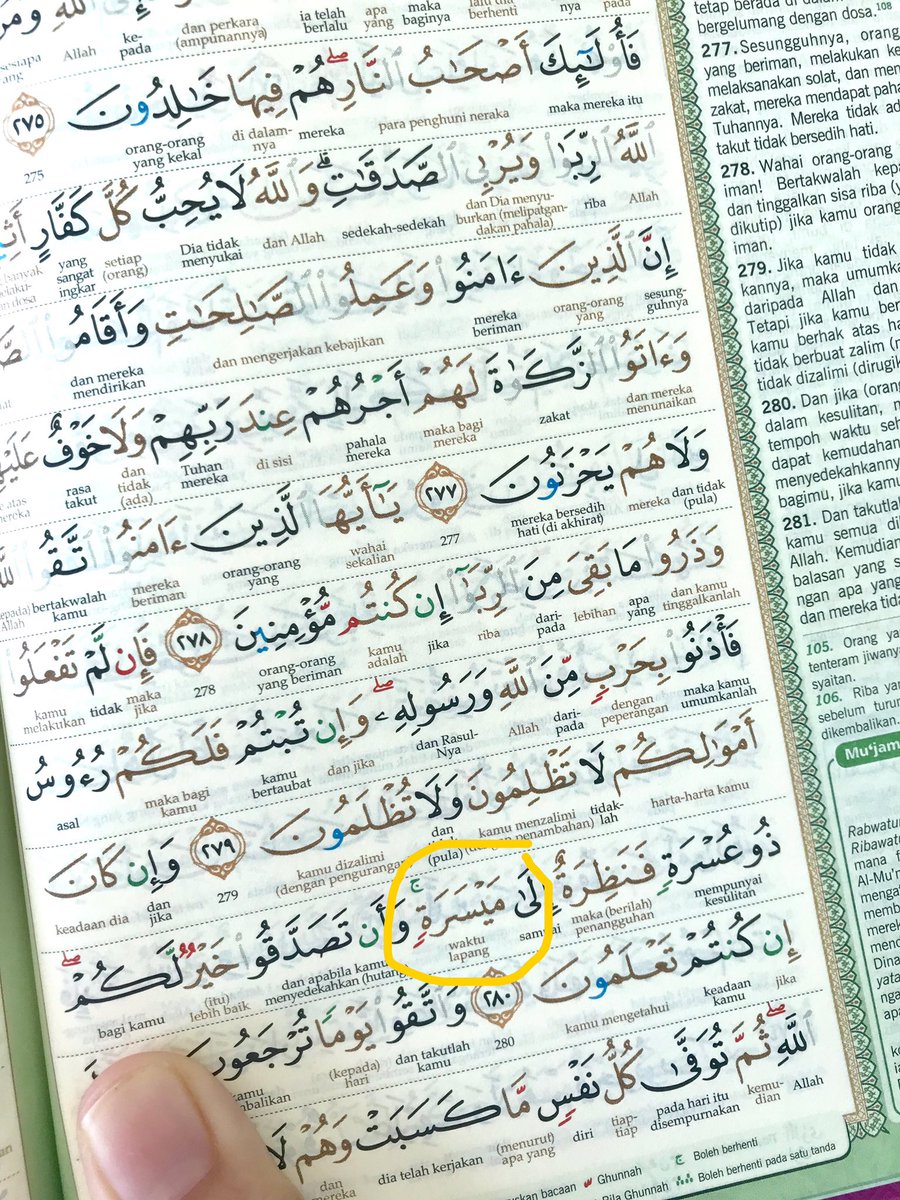 فَأُو۟لَـٰٓئِكَ أَصْحَـٰبُ ٱلنَّارِ ۖ هُمْ فِيهَا خَـٰلِدُونَ ٢٧٥
maka mereka itu para penghuni neraka mereka di dalam-nya orang-orang yang kekal 275
ٱللَّهُ ٱلرِّبَوٰا۟ وَيُرْبِى ٱلصَّدَقَـٰتِ ۗ وَٱللَّهُ لَا يُحِبُّ كُلَّ كَفَّارٍ
Allah riba dan Dia menyuburkan (melipatgandakan pahala) sedekah-sedekah dan Allah Dia tidak menyukai setiap (orang) yang sangat ingkar
إِنَّ ٱلَّذِينَ ءَامَنُوا۟ وَعَمِلُوا۟ ٱلصَّـٰلِحَـٰتِ وَأَقَامُوا۟
sesung-guhnya orang-orang yang mereka beriman dan mengerjakan kebajikan dan mereka mendirikan
وَءَاتَوُا۟ ٱلزَّكَوٰةَ لَهُمْ أَجْرُهُمْ عِندَ رَبِّهِمْ وَلَا خَوْفٌ
dan mereka menunaikan zakat maka bagi mereka pahala mereka di sisi Tuhan mereka dan tidak (ada) rasa takut
وَلَا هُمْ يَحْزَنُونَ ٢٧٧ يَـٰٓأَيُّهَا ٱلَّذِينَ ءَامَنُوا۟ ٱتَّقُوا۟
dan tidak (pula) mereka mereka bersedih hati (di akhirat) 277 wahai sekalian orang-orang yang mereka beriman bertakwalah kamu
وَذَرُوا۟ مَا بَقِىَ مِنَ ٱلرِّبَوٰٓا۟ إِن كُنتُم مُّؤْمِنِينَ ٢٧٨ فَإِن لَّمْ تَفْعَلُوا۟
dan kamu tinggalkanlah apa yang lebihan dari-pada riba jika kamu adalah orang-orang yang beriman 278 maka jika tidak kamu melakukan
فَأْذَنُوا۟ بِحَرْبٍ مِّنَ ٱللَّهِ وَرَسُولِهِۦ ۖ وَإِن تُبْتُمْ فَلَكُمْ رُءُوسُ
maka kamu umumkanlah dengan peperangan dari-pada Allah dan Rasul-Nya dan jika kamu bertaubat maka bagi kamu asal
أَمْوَٰلِكُمْ لَا تَظْلِمُونَ وَلَا تُظْلَمُونَ ٢٧٩ وَإِن كَانَ
harta-harta kamu tidak-lah kamu menzalimi penambahan) dan (pula) kamu dizalimi (dengan pengurangan 279 dan jika keadaan dia
ذُو عُسْرَةٍ فَنَظِرَةٌ إِلَىٰ مَيْسَرَةٍ ۚ وَأَن تَصَدَّقُوا۟ خَيْرٌ لَّكُمْ ۖ
mempunyai kesulitan maka (berilah) penangguhan waktu lapang dan apabila kamu menyedekahkan (hutang (itu) lebih baik bagi kamu
إِن كُنتُمْ تَعْلَمُونَ ٢٨٠ وَٱتَّقُوا۟ يَوْمًا تُرْجَعُونَ
jika keadaan kamu kamu mengetahui 280 dan takutlah kamu (kepada) hari
ٱللَّهِ ۖ ثُمَّ تُوَفَّىٰ كُلُّ نَفْسٍ مَّا كَسَبَتْ وَهُمْ لَا
Allah kemu-dian pada hari itu disempurnakan tiap-tiap diri (menurut) apa yang dia telah kerjakan dan mereka
bacaan Ghunnah ج Boleh berhenti
Bila Ghunnah Boleh berhenti pada satu tanda
tetap berada di
bergelumang dengan dosa.108
277. Sesungguhnya, orang
yang beriman, melakukan ke
melaksanakan solat, dan men
zakat, mereka mendapat paha
Tuhannya. Mereka tidak ad
takut tidak bersedih hati.
278. Wahai orang-orang
iman! Bertakwalah kepa
dan tinggalkan sisa riba (y
dikutip) jika kamu orang
iman.
279. Jika kamu tidak
kannya, maka umumka
daripada Allah dan
Tetapi jika kamu ber
kamu berhak atas ha
tidak berbuat zalim (m
tidak dizalimi (dirugik
280. Dan jika (orang
dalam kesulitan, m
tempoh waktu seh
dapat kemudahan
menyedekahkanny
bagimu, jika kamu
281. Dan takutlah
kamu semua di
Allah. Kemudian
balasan yang s
ngan apa yang
dan mereka tida
105. Orang ya
tenteram jiwany
syaitan.
106. Riba yan
sebelum turun
dikembalikan.
Mu'jam
Rabwatur
Ribawatu
mana f
Al-Mu'
menga
memb
Dina
yata
nga
apa